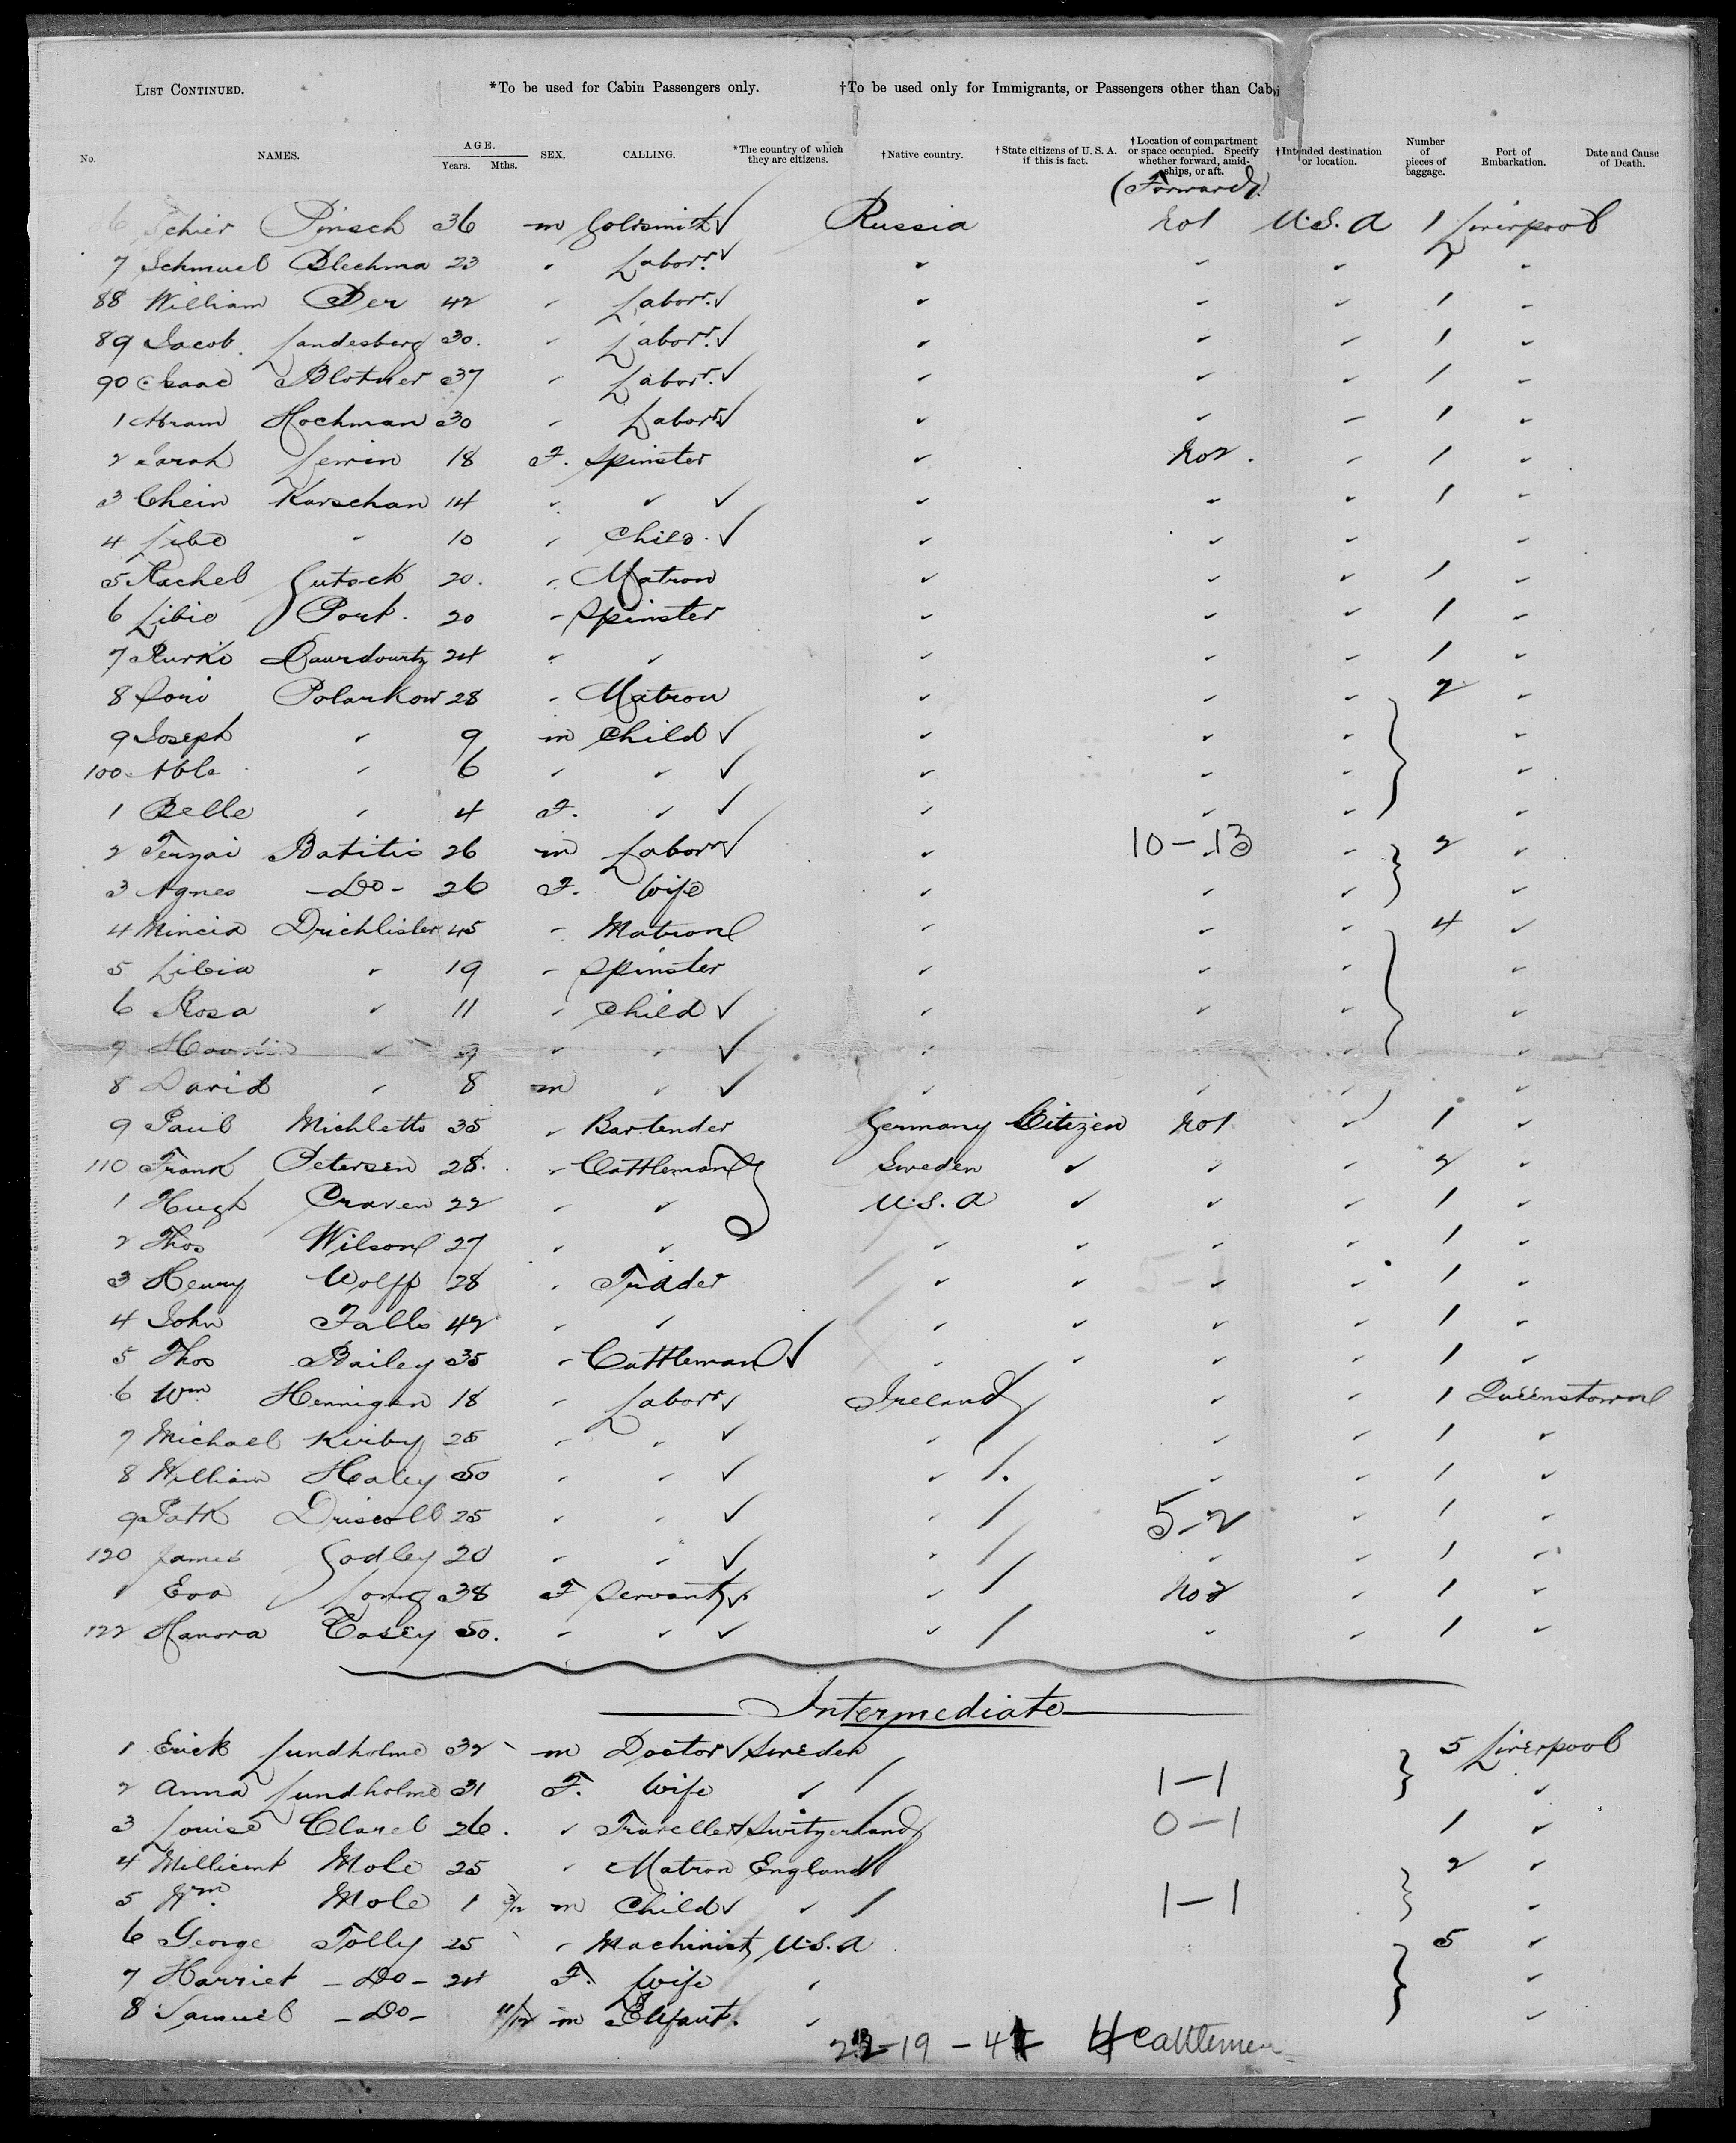 LIST CONTINUED. *To be used for Cabin Passengers only. †To be used only for Immigrants, or Passengers other than Cabi
No. NAMES. AGE. Years. Mths. SEX. CALLING. *The country of which they are citizens. †Native country. †State citizens of U. S. A. if this is fact. †Location of compartment or space occupied. Specify whether forward, amidships, or aft. †Intended destination or location. Number of pieces of baggage. Port of Embarkation. Date and Cause of Death.
(Forward)
6 Schier Pinsch 36 m Goldsmith ✓ Russia No 1 U.S.A 1 Liverpool
7 Schmuel Blechma 23 " Laborr ✓ " " " "
88 William Ber 42 " Laborr ✓ " " " 1 "
89 Jacob Landesberg 30. " Laborr ✓ " " " 1 "
90 Isaac Blotner 37 " Laborr ✓ " " " 1 "
1 Abram Hochman 30 " Laborr ✓ " " " 1 "
2 Sarah Lewin 18 F. Spinster " No 2. " 1 "
3 Chein Karschan 14 " " ✓ " " " 1 "
4 Libe " 10 " Child. ✓ " " " "
5 Rachel Gutock 20. " Matron " " " 1 "
6 Libie Port. 20 " Spinster " " " 1 "
7 24 " " " " " 1 "
8 Polarkow 28 " Matron " " " 2 "
9 Joseph " 9 m Child ✓ " " " "
100 Able " 6 " " ✓ " " " "
1 Belle " 4 F. " ✓ " " " "
2 Batitis 26 m Laborr ✓ " 10-13 " 2 "
3 Agnes -Do- 26 F. Wife " " " "
4 Mincia Drichlister 45 " Matron " " " 4 "
5 Libia " 19 " Spinster " " " "
6 Rosa " 11 " Child ✓ " " " "
" 9 " " ✓ " " " "
8 David " 8 m " ✓ " " " "
9 Paul Michletts 35 " Bartender Germany Citizen No 1 " 1 "
110 Frank Petersen 28. " Cattleman Sweden " " " 2 "
1 Hugh Craven 22 " " U.S.A " " " 1 "
2 Thos Wilson 27 " " " " " " 1 "
3 Henry Wolff 28 " Trader " " " " 1 "
4 John Falls 42 " " " " " " 1 "
5 Thos Bailey 35 " Cattleman ✓ " " " " 1 "
6 Wm Hennigan 18 " Laborr ✓ Ireland " " 1 Queenstown
7 Michael Kirby 25 " " ✓ " " " 1 "
8 William Haley 50 " " ✓ " " " 1 "
9 Patk Driscoll 25 " " ✓ " 5-2 " 1 "
120 James Godley 20 " " ✓ " " " 1 "
1 Eva Long 38 F Servant ✓ " No 2 " 1 "
122 Hanora Casey 50. " " ✓ " " " 1 "
Intermediate
1 Erick Lundholme 32 m Doctor ✓ Sweden 5 Liverpool
2 Anna Lundholme 31 F. Wife " 1-1 "
3 Louise Clarel 26. " Traveller Switzerland 0-1 1 "
4 Millicent Mole 25 " Matron England 2 "
5 Wm. Mole 1 3/12 m Child ✓ " 1-1 "
6 George Tolly 25 " Machinist U.S.A 5 "
7 Harriet -Do- 24 F. Wife " "
8 Samuel -Do- 11/12 m Infant. " "
19 - 4 Cattlemen